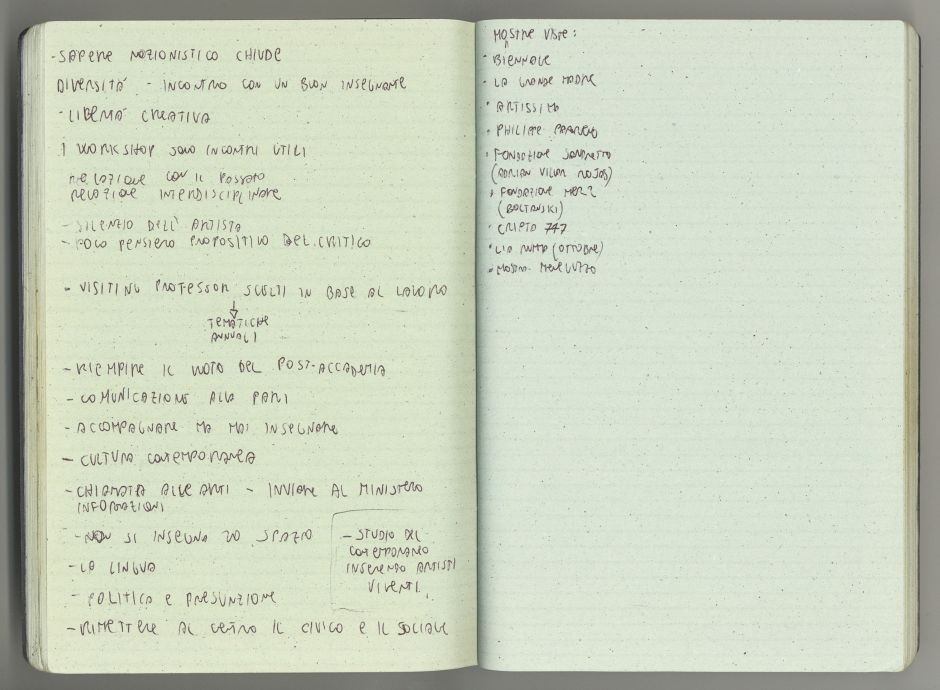 - SAPERE NOZIONISTICO CHIUDE
DIVERSITÀ - INCONTRO CON UN BUON INSEGNANTE
- LIBERTÀ CREATIVA
I WORKSHOP SONO INCONTRI UTILI
RELAZIONE CON IL PASSATO
RELAZIONE INTERDISCIPLINARE
- SILENZIO DELL'ARTISTA
- POCO PENSIERO PROPOSITIVO DEL CRITICO
- VISITING PROFESSOR SCELTI IN BASE AL LAVORO
↓
TEMATICHE
ANNUALI
- RIEMPIRE IL VUOTO DEL POST-ACCADEMIA
- COMUNICAZIONE ALLA PARI
- ACCOMPAGNARE MA MAI INSEGNARE
- CULTURA CONTEMPORANEA
- CHIAMATA ALLE ARTI - INVIARE AL MINISTERO
INFORMAZIONI
- NON SI INSEGNA LO SPAZIO
- LA LINGUA
- POLITICA E PRESUNZIONE
- RIMETTERE AL CENTRO IL CIVICO E IL SOCIALE
- STUDIO DEL
CONTEMPORANEO
INSERENDO ARTISTI
VIVENTI
MOSTRE VISTE:
· BIENNALE
· LA GRANDE MADRE
· ARTISSIMA
· PHILIPPE PARRENO
· FONDAZIONE SANDRETTO
(ADRIAN VILLAR ROJAS)
· FONDAZIONE MERZ
(BOLTANSKI)
· CRIPTA 747
· LIA RUMMA (OTTOBRE)
· MOSTRA MENEGUZZO